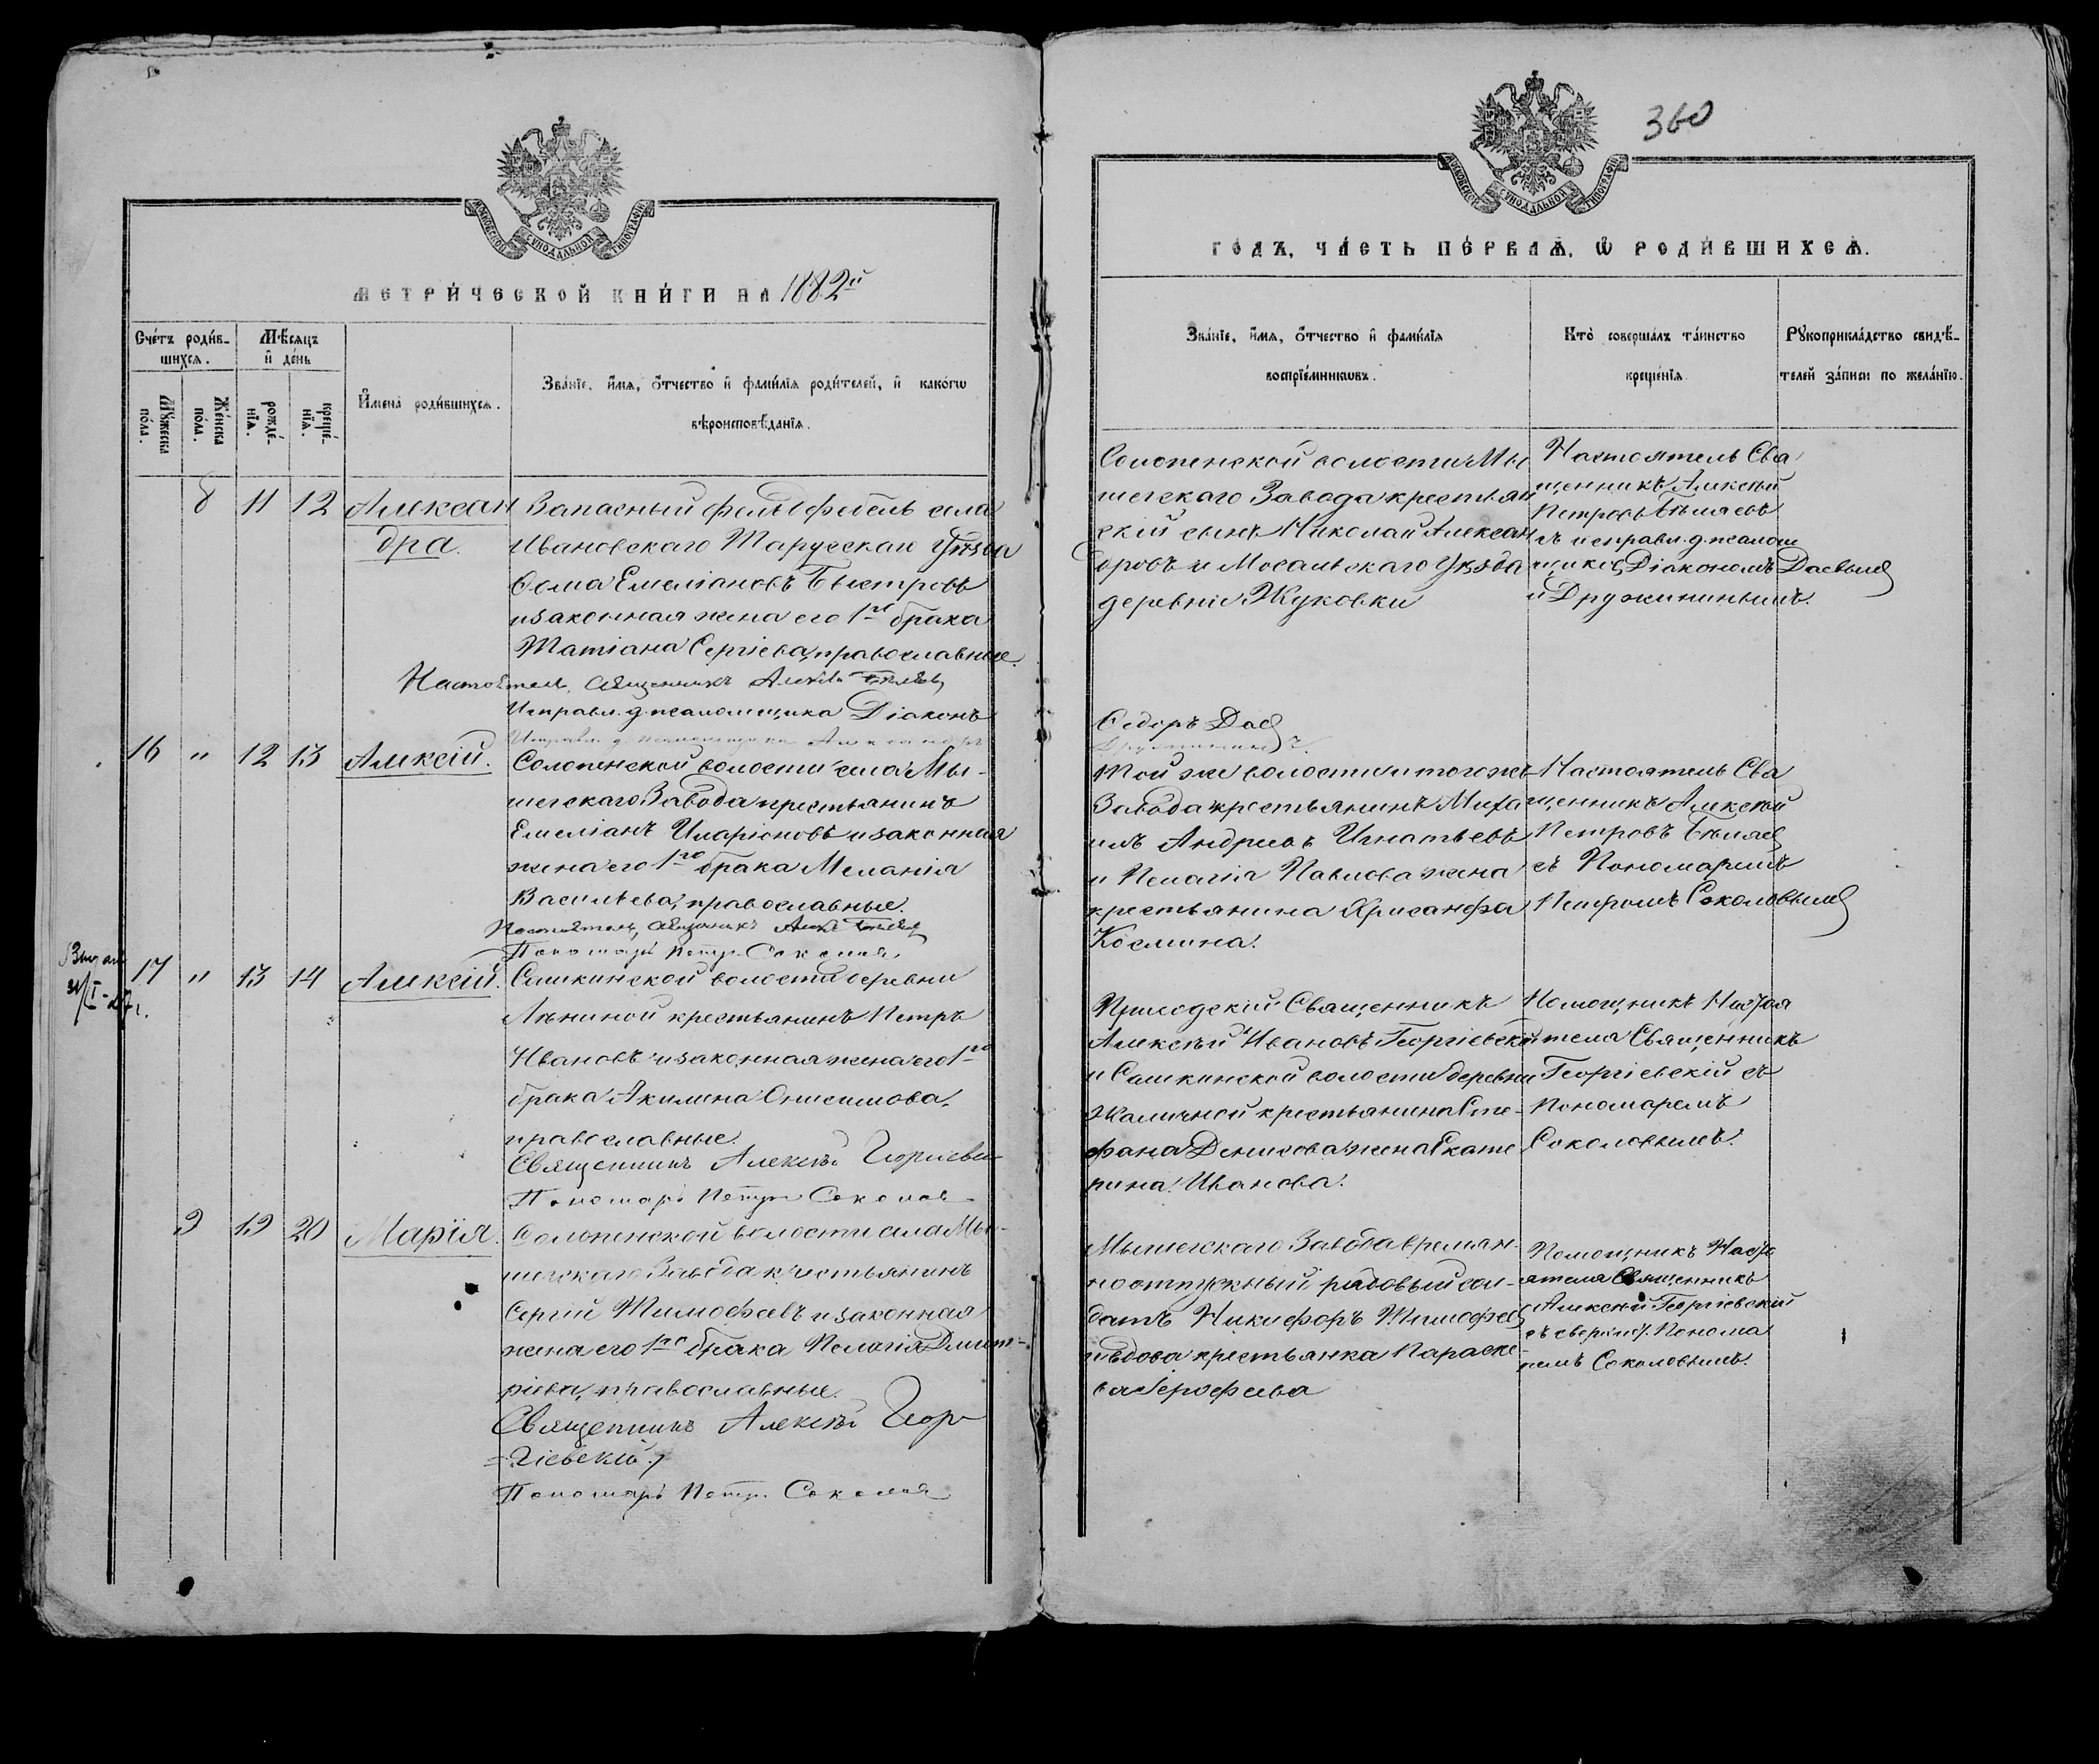 МЕТРИ́ЧЕСКОЙ КНИ́ГИ НА 1882й
Сче́тъ роди́в-
шихсѧ.
Мѣ́сѧцъ
и҆ де́нь
Му́жеска
по́ла.
Же́нска
по́ла.
рожде́-
нїѧ.
креще́-
нїѧ.
И҆мена̀ роди́вшихсѧ.
Зва́нїе, и҆́мѧ, ѻ҆́тчество и҆ фами́лїѧ роди́телей, и҆ како́гѡ
вѣроисповѣ́данїѧ.
8 11 12 Алексан
дра.
Запасный фельдфебель села
Ивановскаго Тарусскаго уѣзда
Ѳома Емеліановъ Быстровъ
и законная жена его 1го брака
Татіана Сергіева, православные.
Настоятель, священникъ Алексѣй Бѣляевъ
Исправл. д. псаломщика Діаконъ
16 " 12 13 Алексій.
Солопенской волости села Мы-
шегскаго Завода крестьянинъ
Емеліанъ Иларіоновъ и законная
жена его 1го брака Меланія
Васильева, православные.
Настоятель, священникъ Алексѣй Бѣляевъ
Пономарь Петръ Соколовъ
17 " 13 14 Алексій.
Сашкинской волости деревни
крестьянинъ Петръ
Ивановъ и законная жена его 1го
брака Акилина Онисимова,
православные.
Священникъ Алексѣй Георгіевскій
Пономарь Петръ Соколовъ
9 19 20 Марія.
Солопенской волости села Мы-
шегскаго Завода крестьянинъ
Сергій Тимофеевъ и законная
жена его 1го брака Пелагія Димит-
ріева, православные.
Священникъ Алексѣй Геор-
=гіевскій
Пономарь Петръ Соколовъ
360
ГО́ДЪ, ЧА́СТЬ ПЕ́РВАѦ, Ѡ҆ РОДИ́ВШИХСѦ.
Зва́нїе, и҆́мѧ, ѻ҆́тчество и҆ фами́лїѧ
воспрїе́мникѡвъ.
Кто̀ соверша́лъ та́инство
креще́нїѧ.
Рꙋкоприкла́дство свидѣ́-
телей за́писи по жела́нїю.
Солопенской волости Мы
шегскаго Завода крестьян
скій сынъ Николай Алексан
дровъ и Мосальскаго уѣзда
деревни Жуковки
Настоятель Свя
щенникъ Алексѣй
Петровъ Бѣляевъ
съ исправл. д. псалом
щика, Діакономъ Даевым
и Дружининымъ.
Ѳедоръ Даев
Той же волости и того же
Завода крестьянинъ Миха
илъ Андреевъ Игнатьевъ
и Пелагія Павлова жена
крестьянина Хрисанфа
Космина.
Настоятель Свя
щенникъ Алексѣй
Петровъ Бѣляев
съ Пономаремъ
Петромъ Соколовым
Приходскій Священникъ
Алексѣй Ивановъ Георгіевскій
и Сашкинской волости деревни
крестьянина Сте-
фана Денисова жена Екате
рина Иванова.
Помощникъ Настоя
теля Священникъ
Георгіевскій съ
Пономаремъ
Соколовымъ.
Мышегскаго Завода времен-
ноотпускный рядовый сол-
датъ Никифоръ Тимофеев
и вдова крестьянка Параске-
ва Ерофеева
Помощникъ Насто
ятеля Священникъ
Алексѣй Георгіевскій
съ Понома
ремъ Соколовымъ.